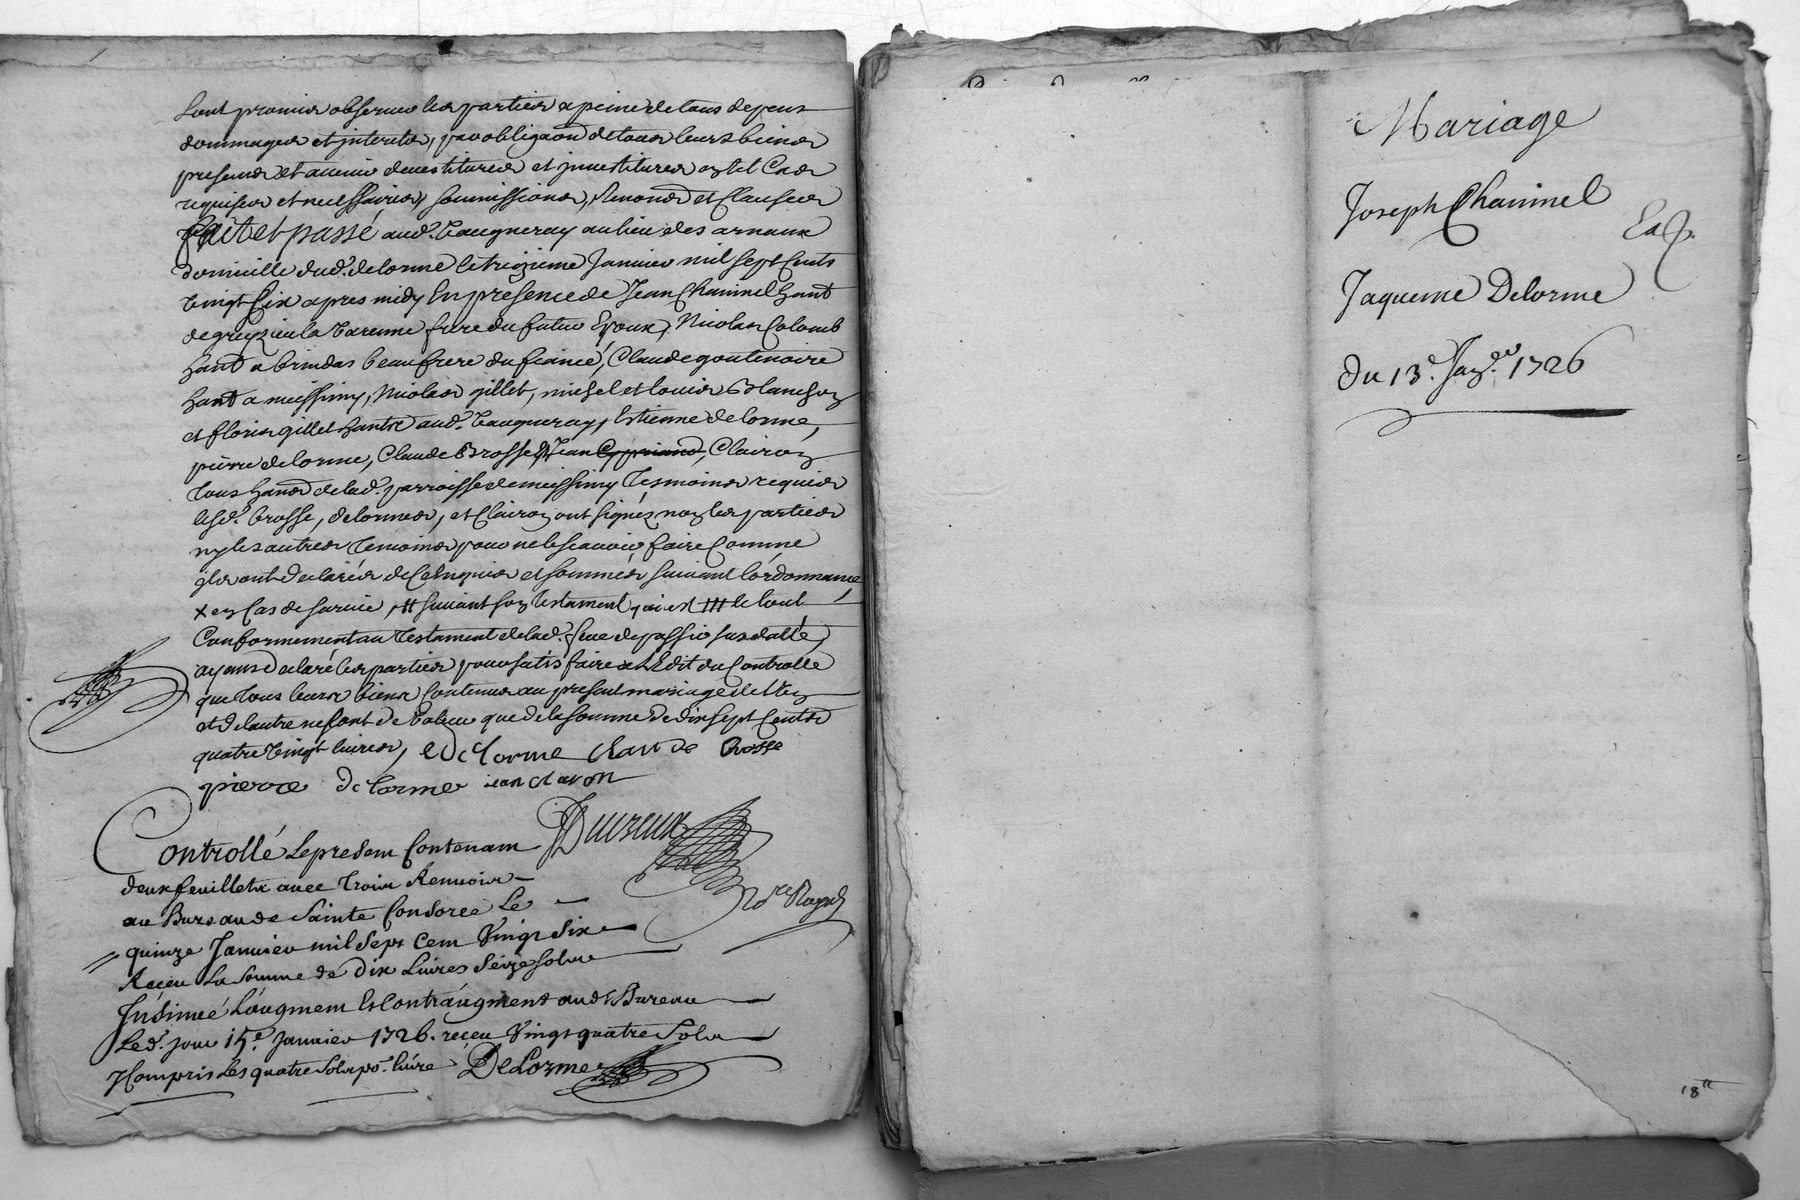 sont promier observer les parties a peine de tous depens
dommages et interets, par obligaon de tous leurs biens
presens et avenir devestitures et investitures en tel cas
requises et necessaires, soumissions, Renonds et Clauses
fait et passé aud. Vaugneray au lieu des arnaux
domicille dud. delorme le treizieme Janvier mil sept cents
vingt six apres midy En presence de Jean Chaninel hant
de grezieu la Varenne frere du futur Epoux, Nicolas Colomb
hant a brindas beaufrere du fiancé, Claude goutenoire
hant a messimy, Nicolas gillet, michel et louis Blanchon
et floris gillet hants aud. Vaugneray, Estienne delorme,
pierre delorme, Claude Brosse, Jean Clairon
tous hands de lad. parroisse de meissimy tesmoins requis
lesd. brosse, delormes, et Clairon ont signéz non les parties
ny les autres temoins pour ne le scavoir faire comme
ils ont declarés de ce enquis et sommés suivant l'ordonnance
x en cas de survie, # suivant son testament qui est ### le tout
Conformement au testament de lad. feue
ayans declaré les parties pour satisfaire a l'Edit du Controlle
que tous leurs biens contenus au present mariage de l'un
et de l'autre ne sont de valeur que de la somme de dix sept cents
quatre vingt livres, e De lorme claude Brosse
pierre de lorme iean claron
Controllé le presem Contenam
deux feuillets avec trois Renvois
au Bureau de Sainte Consorce Le
quinze Janvier mil sept cem Vingt six
Receu La somme de dix Livres seize sols
Insinué L'augmem Et Contraugment aud. Bureau
Led. jour 15e Janvier 1726. receu Vingt quatre Sols
y Compris Les quatre sols po. livre DeLorme
Mariage
Joseph Chaninel
Et
Jaqueme Delorme
du 13e. Janr. 1726
18